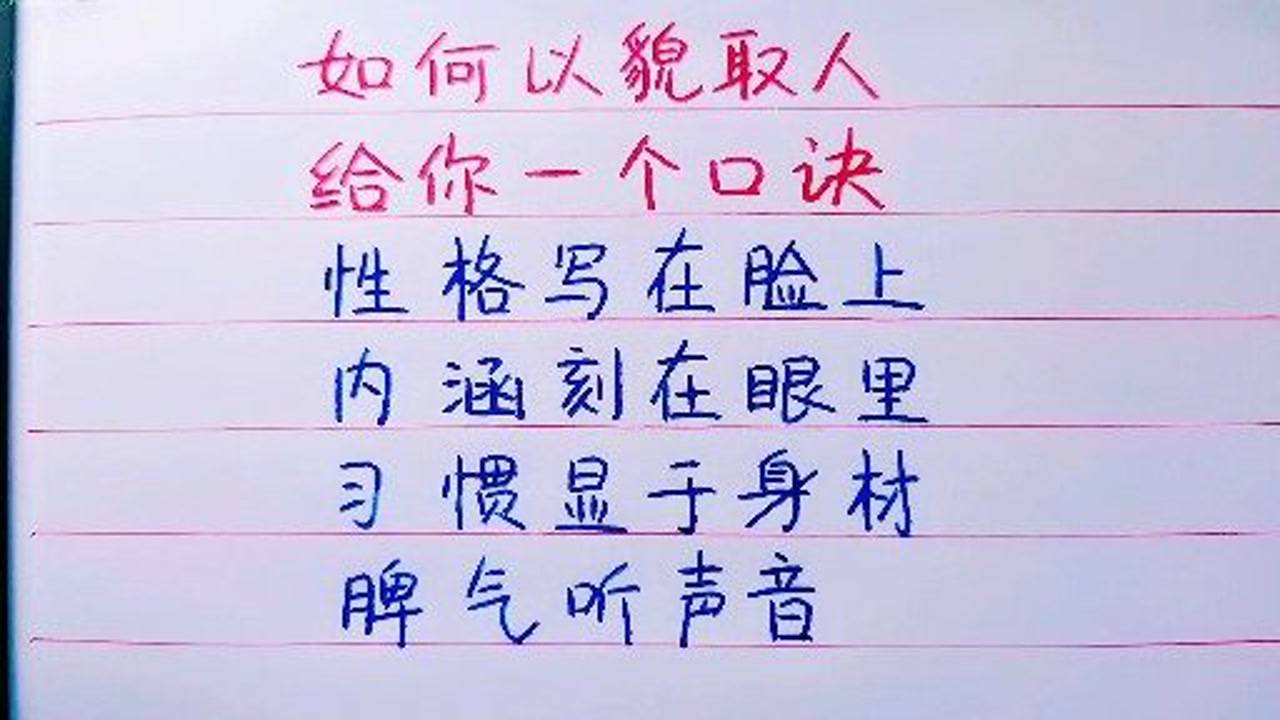 如何以貌取人
给你一个口诀
性格写在脸上
内涵刻在眼里
习惯显于身材
脾气听声音